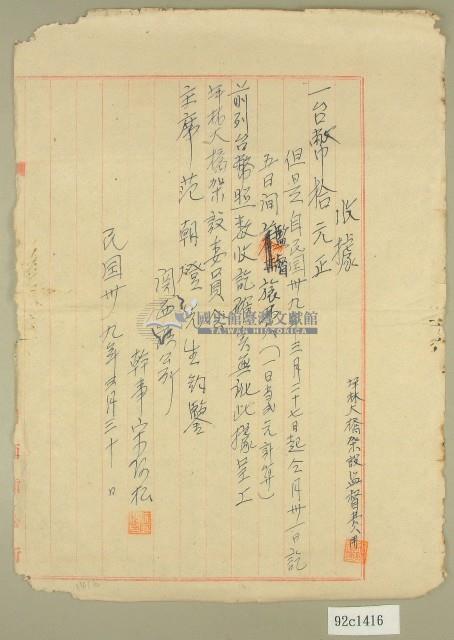 坪林大橋架設監督費用
收據
一台幣拾元正
但是自民國卅九年三月二十七日起仝月卅一日訖
五日間監督旅費(一日當貳元計算)
前列台幣照数收訖確實無訛此據呈工
坪林大橋架設委員会
主席范朝燈先生鈞鑒
関西鎮公所
幹事宋阿松
民国卅九年三月三十日
國史館臺灣文獻館
TAIWAN HISTORICA
92c1416